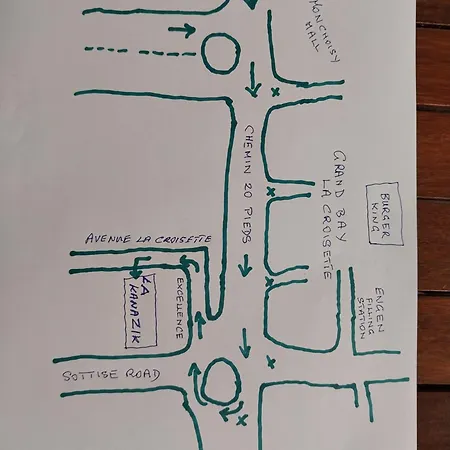 MONCHOISY
MALL
CHEMIN 20 PIEDS
GRAND BAY
LA CROISETTE
BURGER
KING
AVENUE LA CROISETTE
LA
KANAZIK
EXCELLENCE
ENGEN
FILLING
STATION
SOTTISE ROAD